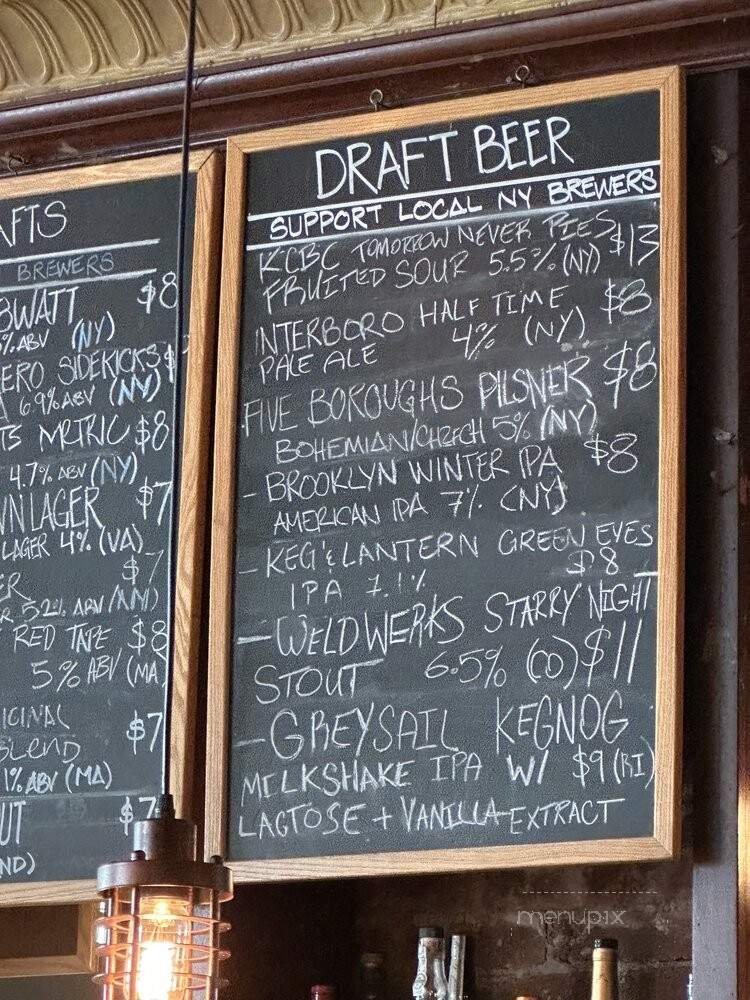 AFTS
BREWERS
BWATT $8
%ABV (NY)
ERO SIDEKICKS $
6.9%ABV (NY)
METRIC $8
4.7% ABV (NY)
WN LAGER $7
LAGER 4% (VA)
ER $7
5.2% ABV
RED TAPE $8
5% ABV (MA
ICINAL $7
BLEND
1% ABV (MA)
UT $7
ND)
DRAFT BEER
SUPPORT LOCAL NY BREWERS
KCBC TOMORROW NEVER PIES $13
FRUITED SOUR 5.5% (NY)
INTERBORO HALF TIME $8
PALE ALE 4% (NY)
FIVE BOROUGHS PILSNER $8
BOHEMIAN/CHZECH 5% (NY)
- BROOKLYN WINTER IPA $8
AMERICAN IPA 7% (NY)
- KEG & LANTERN GREEN EYES
IPA 7.1% $8
- WELDWERKS STARRY NIGHT
STOUT 6.5% (CO) $11
- GREYSAIL KEGNOG
MILKSHAKE IPA W/ $9 (RI)
LACTOSE + VANILLA EXTRACT
menupix